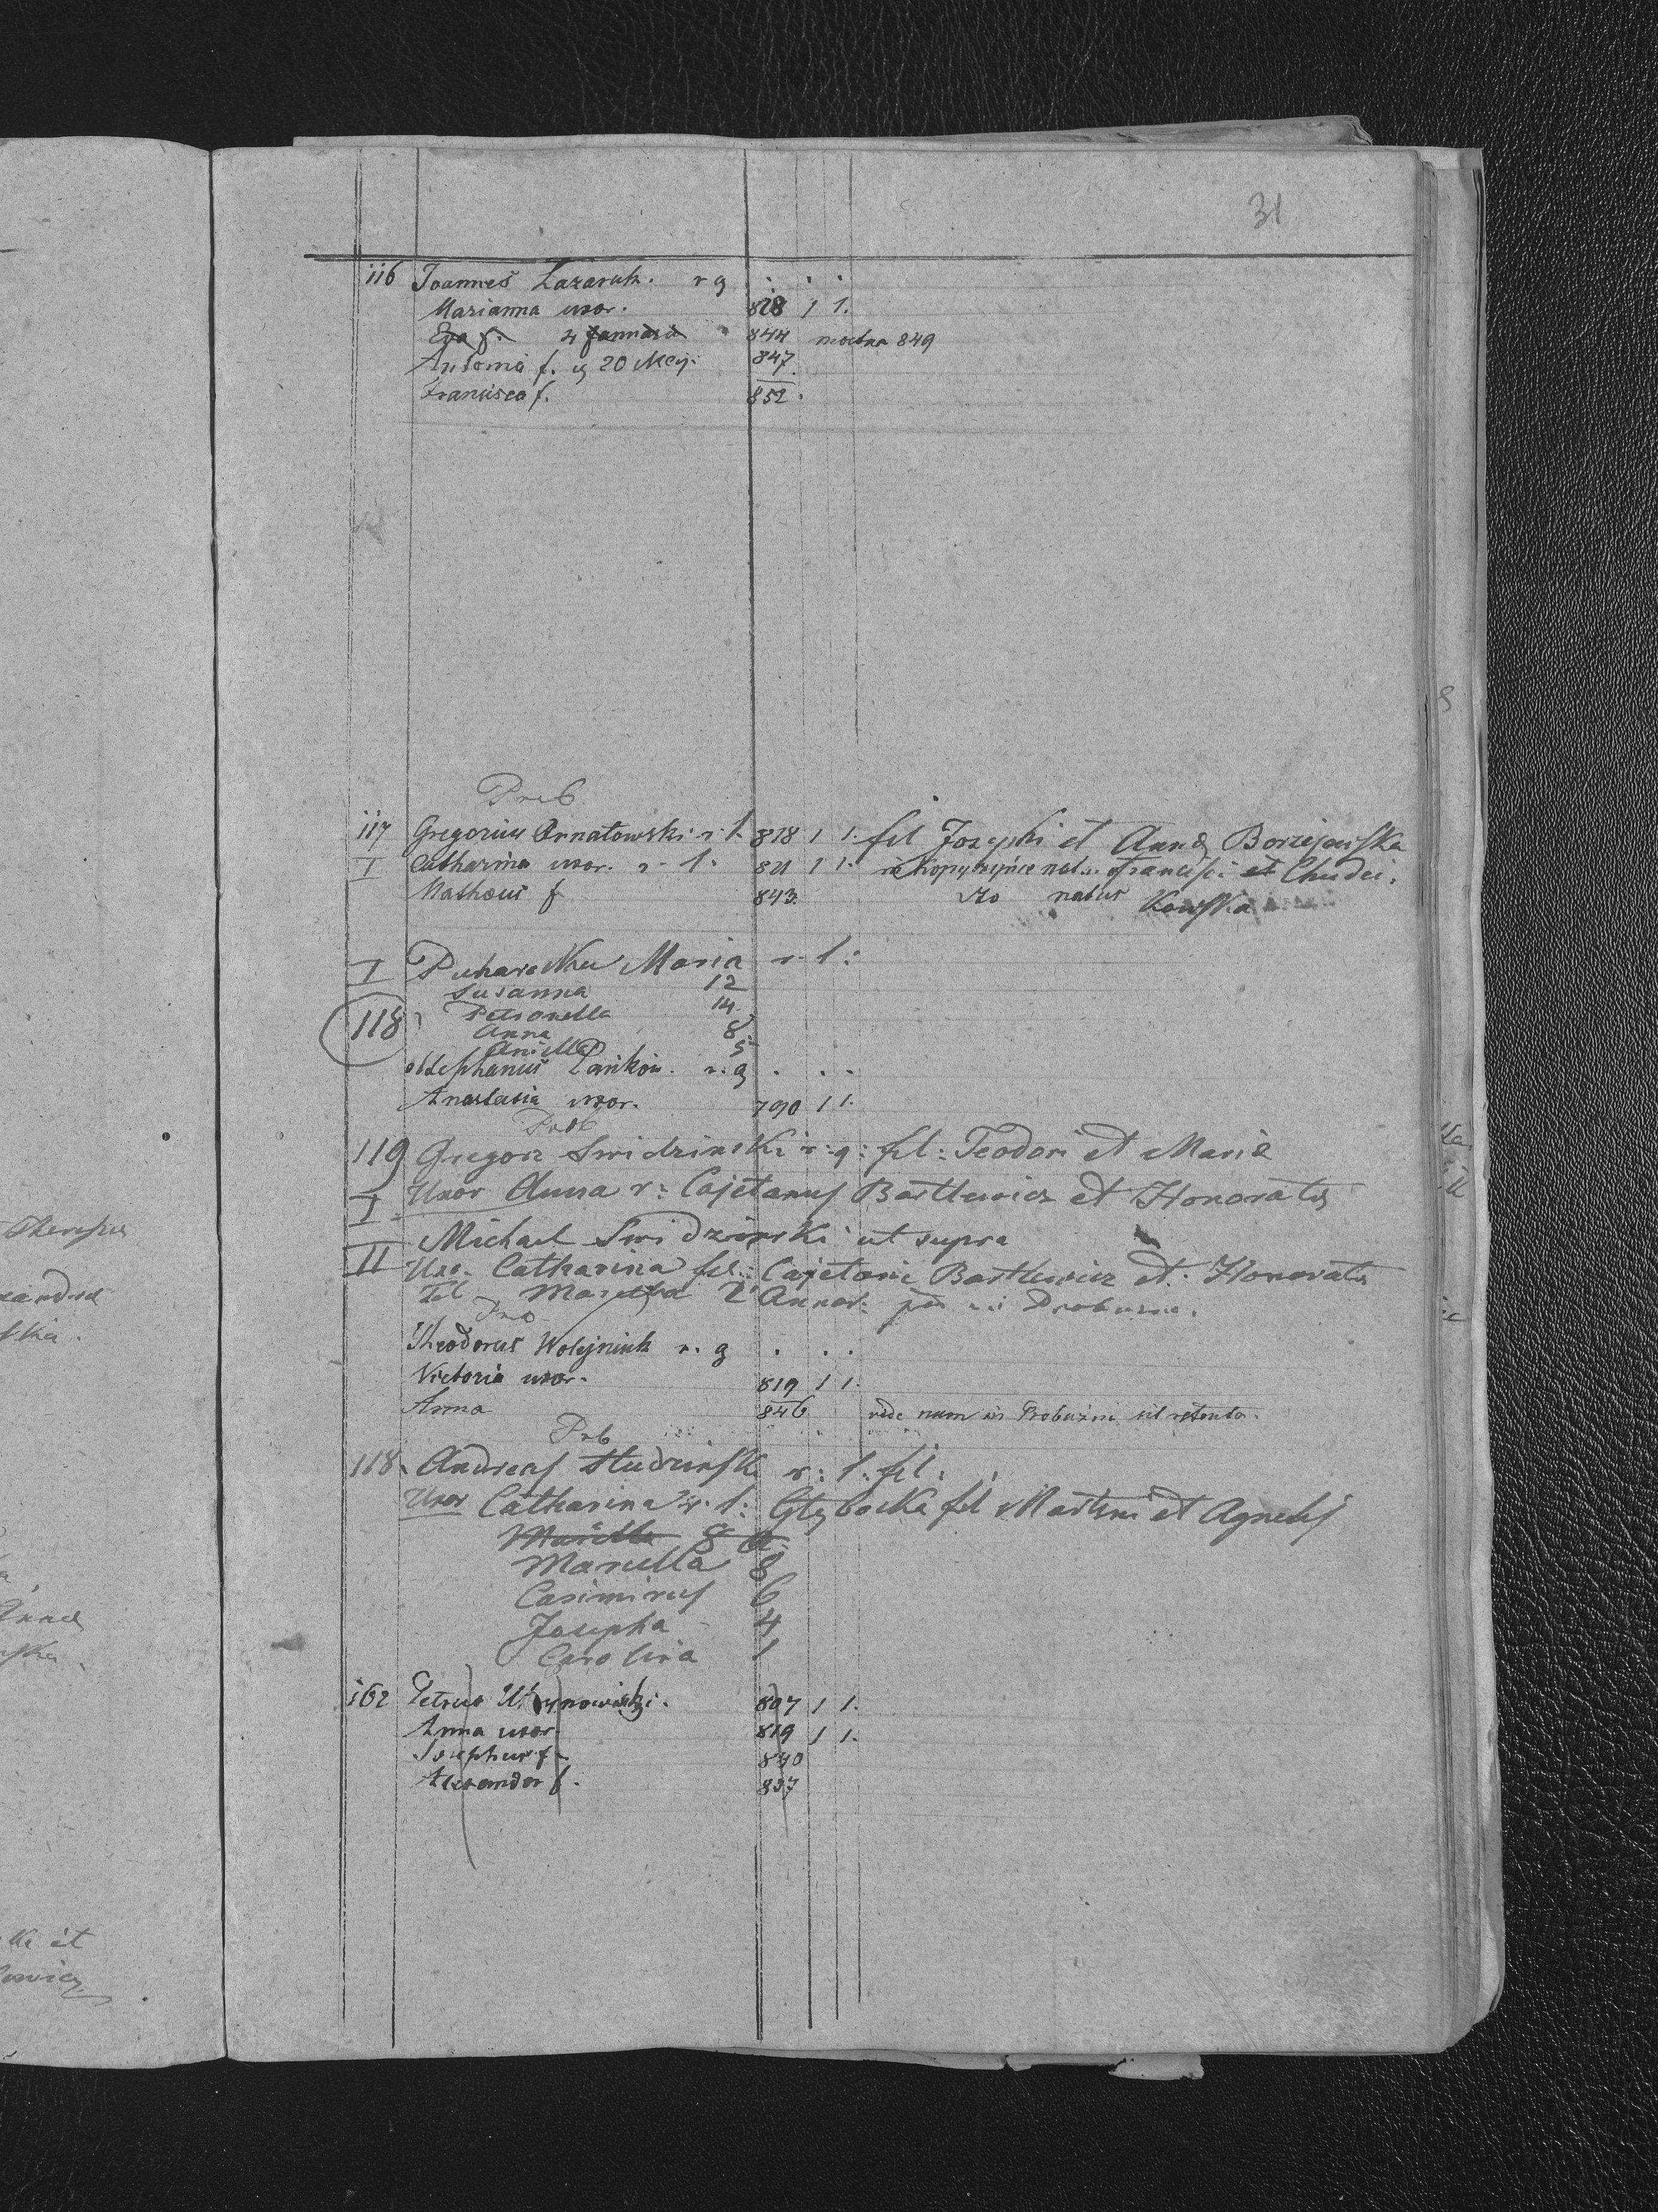 31
116 Joannes Lazaruk. r g . . .
Marianna uxor. 828 1 1.
Eva f. 4 Januarii 844 mortua 849
Antonia f. 20 Maij. 847
Francisca f. 852.
Prob
117 Gregorius Ornatowski r. l. 818 1 1. fil Josephi et Anna
I Catharina uxor. r. l. 821 1 1. Francisci et Chudzi.
Mathæus f 843. natus Kowska
I Maria r. l:
Susanna 12
118 Petronella 14
Anna 8
Aniella 5
Stephanus Pankow. r. g . . .
Anastasia uxor. 790 1 1.
Prob
119 Gregorz Swidzinski r. g: fil: Teodori et Mariæ
I Uxor Anna r: Cajetanus Bartlewicz et Honorata
II Michael Swidzinski ut supra
Uxo. Catharina fil: Cajetani Bartlewicz et: Honorata
Fil 2 Annor:
Pro
Theodorus Wolyniuk r. g . . .
Victoria uxor. 819 1 1.
Anna 846 vide num in Probużni sit retenta.
Prb
118. Andreas Studzinski r: l: fil:
Uxor Catharina r. l: Głębocka fil Martini et Agnetis
Mariella 8
Casimirus 6
Josepha 4
Carolina 1
162 Petrus 807 1 1.
Anna uxor 819 1 1.
Josephus f 840
Alexander f. 837